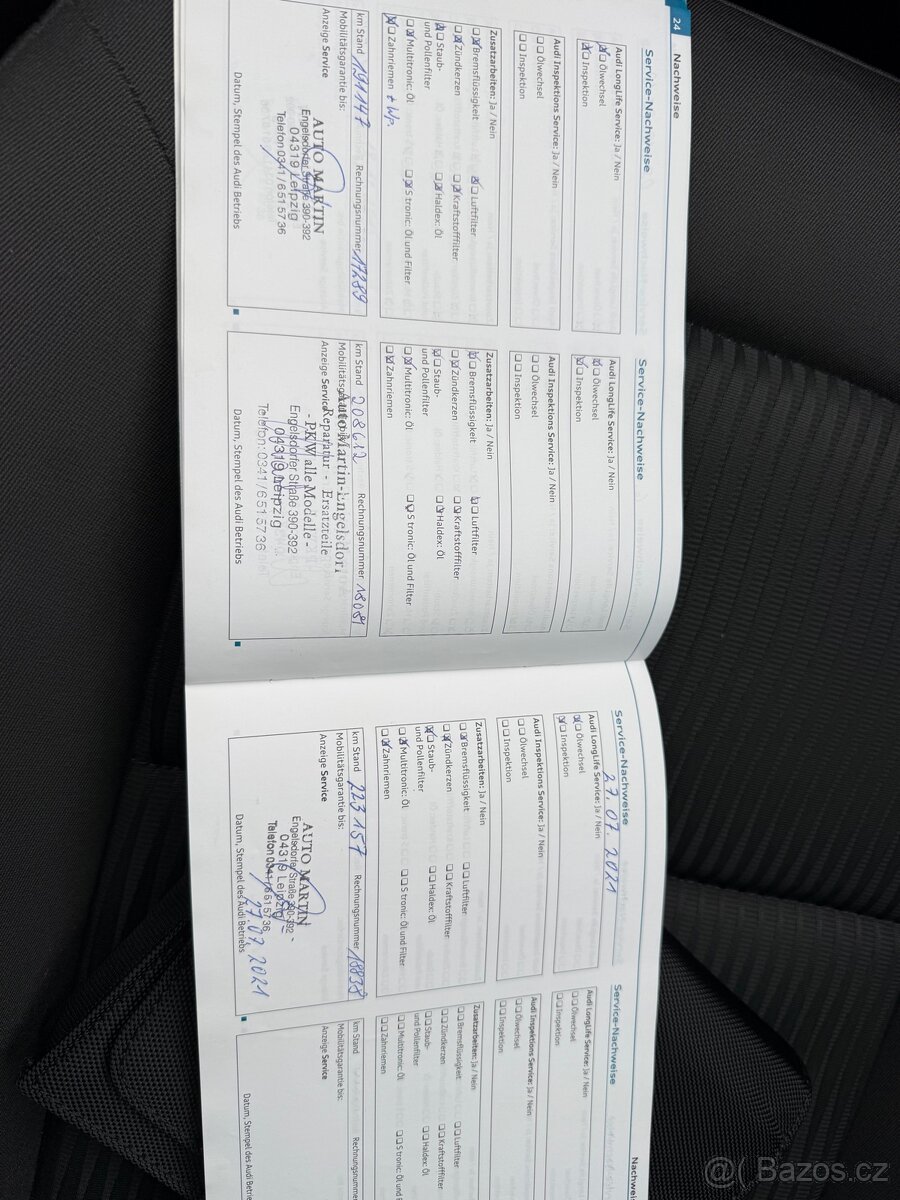 24
Nachweise
Service-Nachweise
Audi LongLife Service: Ja / Nein
Ölwechsel
Inspektion
Audi Inspektions Service: Ja / Nein
Ölwechsel
Inspektion
Zusatzarbeiten: Ja / Nein
Bremsflüssigkeit
Luftfilter
Zündkerzen
Kraftstofffilter
Staub-
und Pollenfilter
Haldex: Öl
Multitronic: Öl
S tronic: Öl und Filter
Zahnriemen + Wp.
km Stand 191147
Rechnungsnummer 17289
Mobilitätsgarantie bis:
Anzeige Service
AUTO MARTIN
Engelsdorfer Straße 390-392
04319 Leipzig
Telefon 0341 / 651 57 36
Datum, Stempel des Audi Betriebs
Service-Nachweise
Audi LongLife Service: Ja / Nein
Ölwechsel
Inspektion
Audi Inspektions Service: Ja / Nein
Ölwechsel
Inspektion
Zusatzarbeiten: Ja / Nein
Bremsflüssigkeit
Luftfilter
Zündkerzen
Kraftstofffilter
Staub-
und Pollenfilter
Haldex: Öl
Multitronic: Öl
S tronic: Öl und Filter
Zahnriemen
km Stand 208612
Rechnungsnummer 18081
Anzeige Service
Auto Martin-Engelsdorf
Reparatur - Ersatzteile
- PKW alle Modelle -
Engelsdorfer Straße 390-392
04319 Leipzig
Telefon: 0341 / 651 57 36
Datum, Stempel des Audi Betriebs
Service-Nachweise
27.07.2021
Audi LongLife Service: Ja / Nein
Ölwechsel
Inspektion
Audi Inspektions Service: Ja / Nein
Ölwechsel
Inspektion
Zusatzarbeiten: Ja / Nein
Bremsflüssigkeit
Luftfilter
Zündkerzen
Kraftstofffilter
Staub-
und Pollenfilter
Haldex: Öl
Multitronic: Öl
S tronic: Öl und Filter
Zahnriemen
km Stand 223157
Rechnungsnummer 18838
Mobilitätsgarantie bis:
Anzeige Service
AUTO MARTIN
Engelsdorfer Straße 390-392
04319 Leipzig
Telefon 0341 / 6 51 57 36
27.07.2021
Datum, Stempel des Audi Betriebs
Service-Nachweise
Audi LongLife Service: Ja / Nein
Ölwechsel
Inspektion
Audi Inspektions Service: Ja / Nein
Ölwechsel
Inspektion
Zusatzarbeiten: Ja / Nein
Bremsflüssigkeit
Luftfilter
Zündkerzen
Kraftstofffilter
Staub-
und Pollenfilter
Haldex: Öl
Multitronic: Öl
S tronic: Öl und
Zahnriemen
km Stand
Rechnungsnummer
Mobilitätsgarantie bis:
Anzeige Service
Datum, Stempel des Audi Betriebs
Bazos.cz